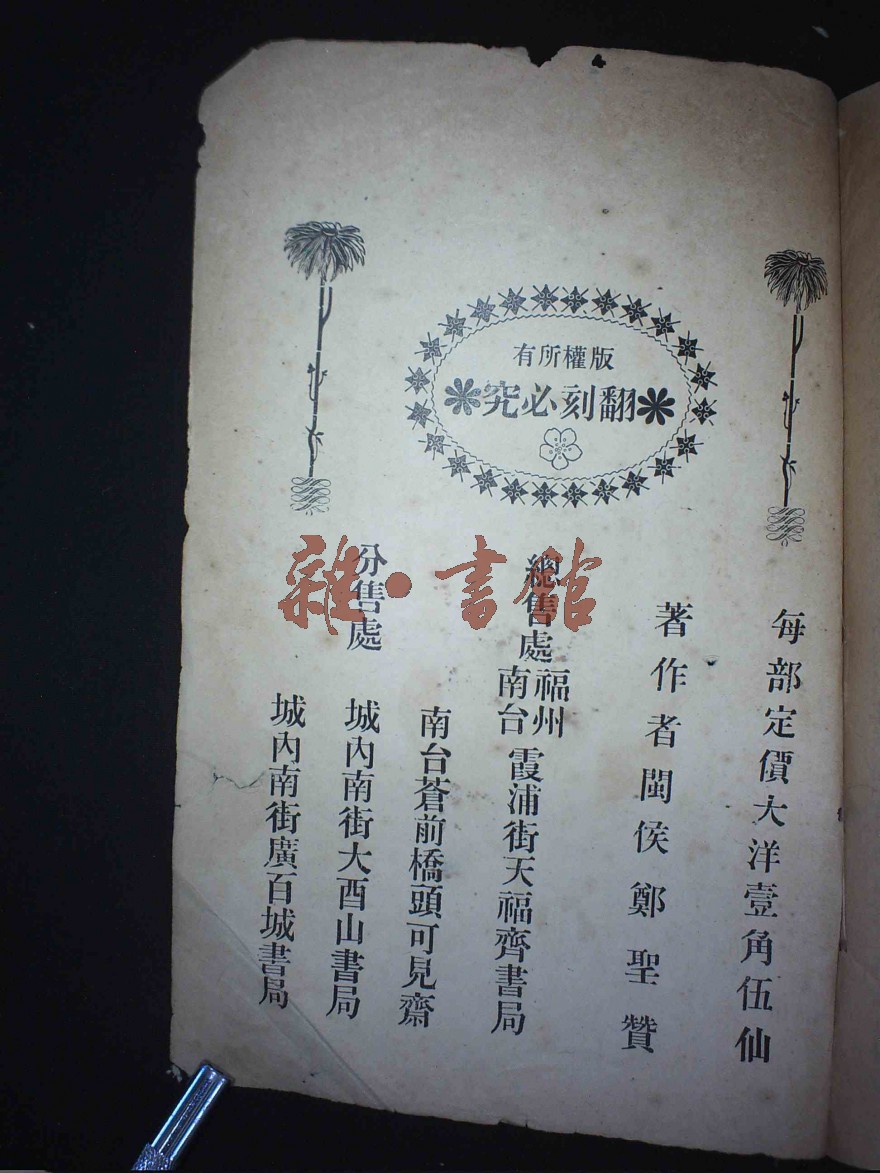 版權所有
翻刻必究
每部定價大洋壹角伍仙
著作者閩侯鄭聖贊
總售處福州南台霞浦街天福齊書局
南台蒼前橋頭可見齋
分售處
城內南街大酉山書局
城內南街廣百城書局
雜·書館